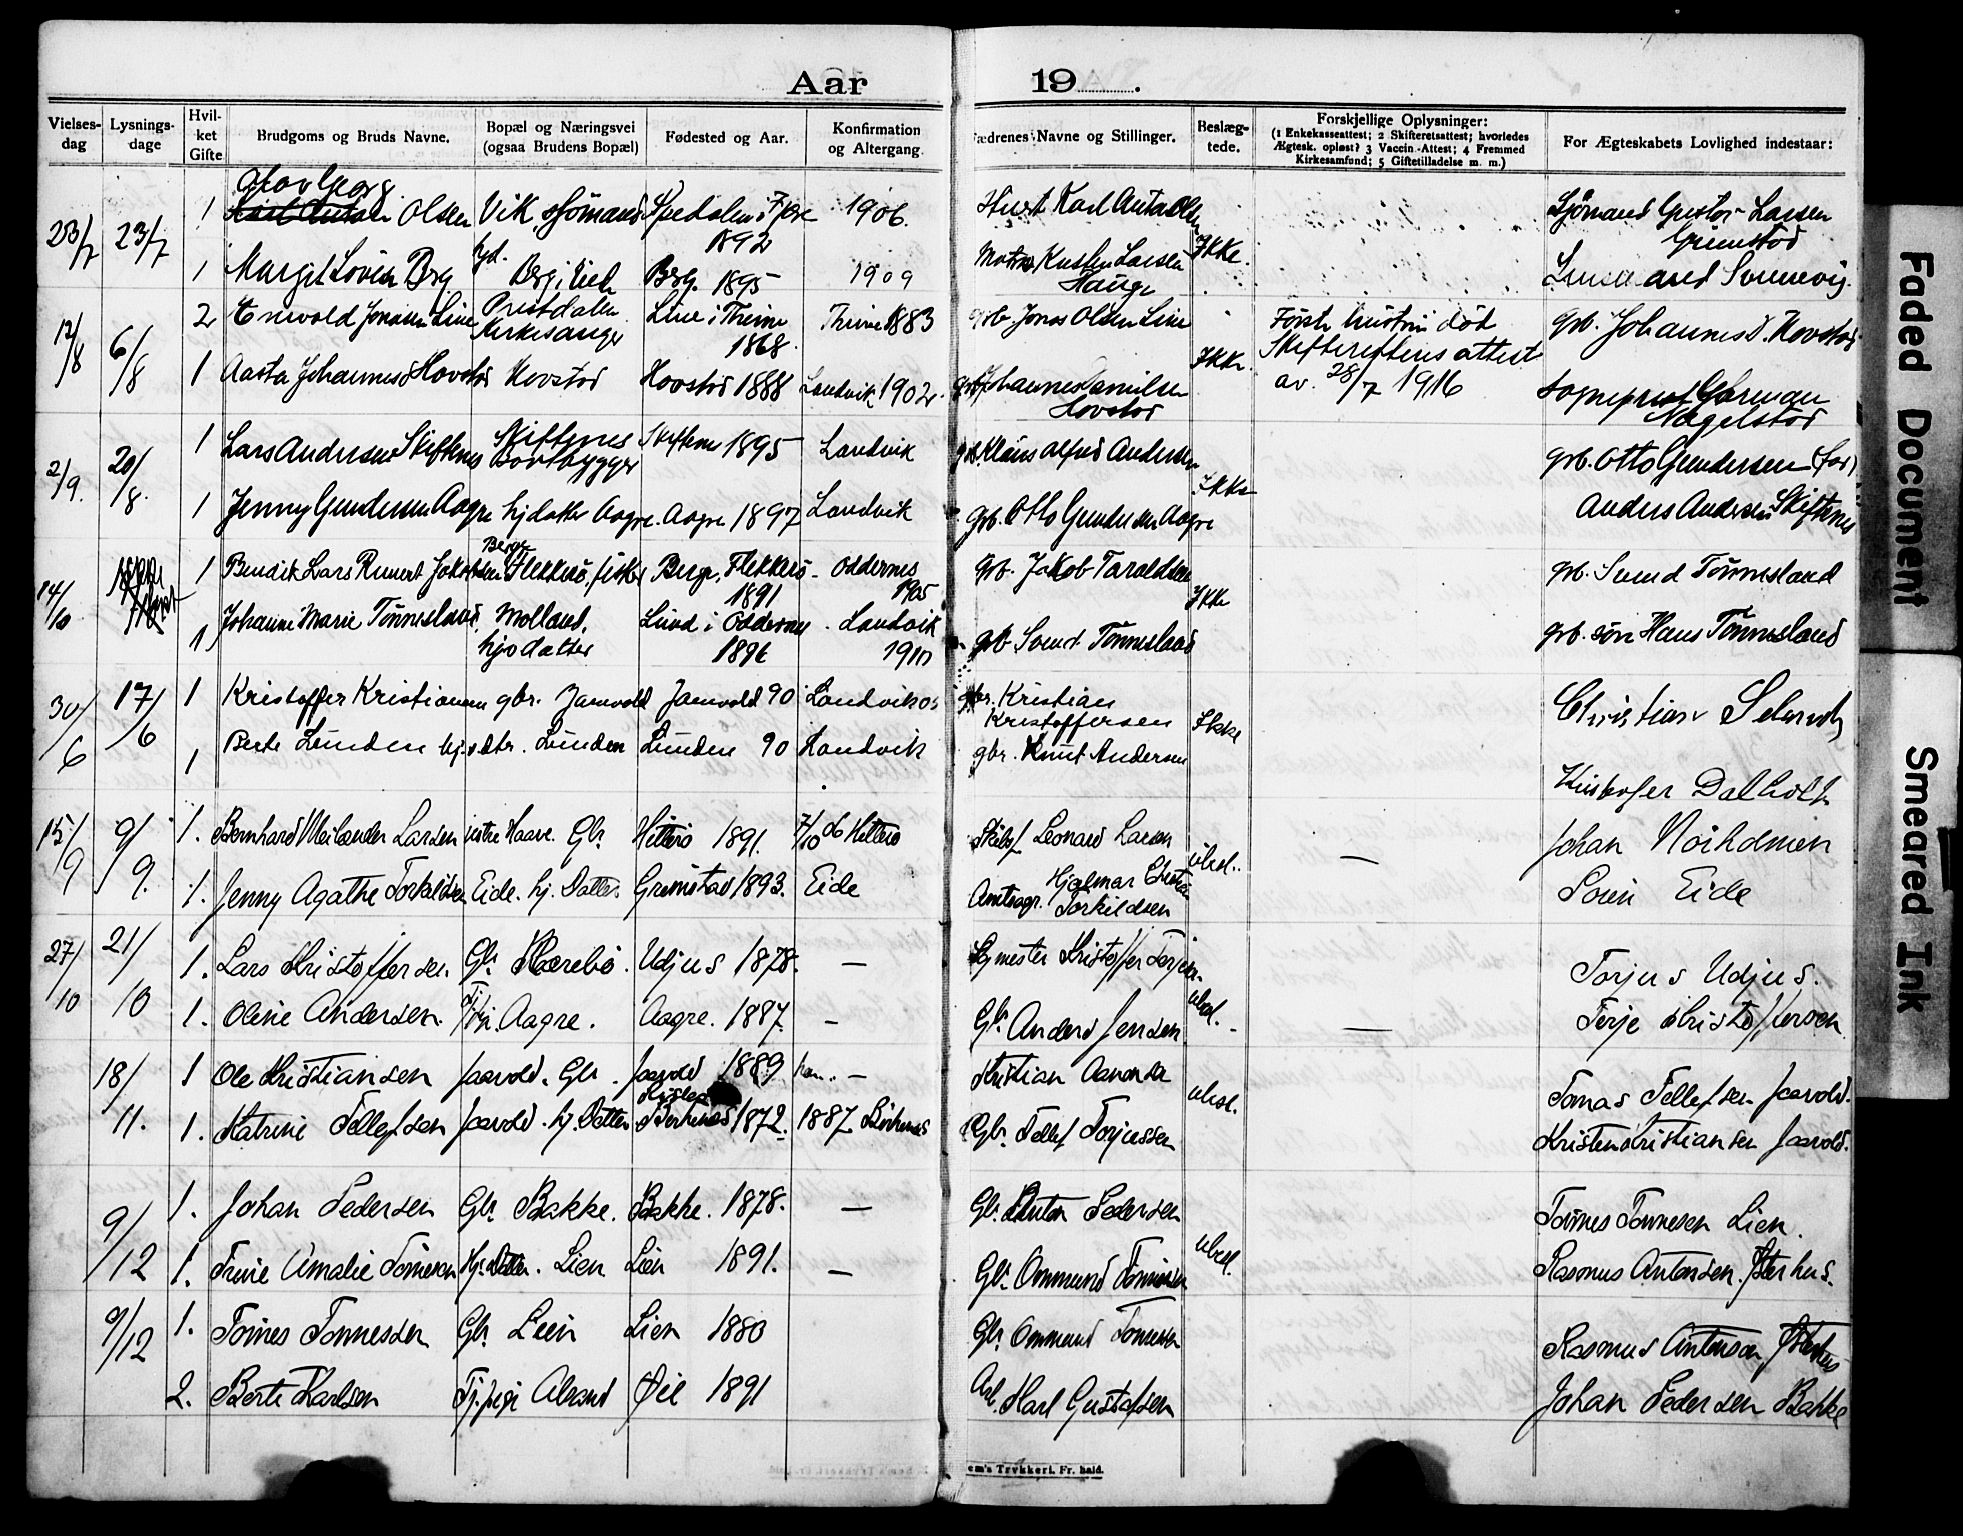 Aar 19 .
Vielses-dag
Lysnings-dage
Hvil-ket Gifte
Brudgoms og Bruds Navne.
Bopæl og Næringsvei (ogsaa Brudens Bopæl)
Fødested og Aar.
Konfirmation og Altergang
ædrenes Navne og Stillinger.
Beslæg-tede.
Forskjellige Oplysninger:
(1 Enkekasseattest; 2 Skifteretsattest; hvorledes
Ægtesk. opløst? 3 Vaccin.-Attest; 4 Fremmed
Kirkesamfund; 5 Giftetilladelse m. m.)
For Ægteskabets Lovlighed indestaar:
23/7 23/7 1 Georg Olsen Vik, sjømand 1892 1906. Karl Anton Olsen Ikke. Sjømand Gustav Larsen Grimstad
1 Margit Lovise Berg Berg i Eide Berg. 1895 1909 Larsen Hauge
12/8 6/8 2 Enevold Jonasen Line Line i Thime 1868 Thime 1883 Jonas Olsen Line Ikke. Første hustru død Skifterettens attest av 28/7 1916 grb. Johannes D. Hovstad
1 Aasta Johannesd Hovstad Hovstad Hovstad 1888 Landvik 1902 Johannes Danielsen Hovstad sogneprest Gorman Nagelstad
2/9. 20/8. 1 Lars Andersen Skiftenes Skiftenes Skiftene 1895 Landvik grb. Klaus Alfred Andersen Ikke grb. Otto Gundersen (far)
1 Jenny Gundersen Aagre hj. datter Aagre. Aagre 1897 Landvik grb. Otto Gundersen Aagre Anders Andersen Skiftenes
14/10 1 Bendik Lars Jakobsen Berge Flekkerø, fisker Berge, Flekkerø 1891 Oddernes 1905 grb. Jakob Taraldsen Ikke grb. Svend Tønnesland
1 Johanne Marie Tønnesland Molland, hjv datter Lund i Oddernes 1896 Landvik 1910 grb. Svend Tønnesland grb. søn Hans Tønnesland
30/6 17/6 1 Kristoffer Kristiansen gbr. Jaavold Jaavold 90 Landvik 05 gbr. Kristian Kristoffersen Ikke Christian
1 Berte Lunden hjv. dtr. Lunden Lunden 90 Landvik gbr. Knut Andersen Kristofer Dalholt
15/9 9/9. 1. Bernhard Larsen Gbr Hitterø 1891. 7/10 06 Hitterø Leonard Larsen ubesl. — Johan Noiholmen
1. Jenny Agathe Torkildsen Eide. hj. Datter Grimstad 1893. Eide Amtsagr. Hjalmar Torkildsen Soren Eide
27/10 21/10 1. Lars Kristoffersen. Gbr Udjus 1878. — Kristoffer ubesl. — Torjus Udjus.
1. Oline Andersen. Aagre. Aagre. 1887. — Gbr Anders Jensen Terje Kristoffersen
18/11. 1 Ole Kristiansen Jaavold. Gbr. Jaavold 1889 — Kristian ubesl. Tomas Tellefsen Jaavold.
1. Katrine Tellefsen Jaavold. hj. Datter Birkenes 1872. 1887 Birkenes Gbr. Tellef Torjussen Kristen Kristiansen Jaavold.
9/12 1. Johan Pedersen Gbr Bakke. Bakke. 1878. — Gbr. Pedersen ubesl. Tønnes Tønnesen Lien.
1. Trine Amalie Tønnesen Hj. Datter. Lien Lien 1891. — Gbr. Ommund Tønnesen Rasmus Antonsen. Østerhus.
9/12 1. Tønnes Tønnessen Gbr Lien Lien 1880 Gbr Ommund Tønnessen Rasmus Antonsen Østerhus
2. Berte Karlsen Tj. pige 1891 Karl Gustafsen Johan Pedersen Bakke
em's Trykkeri. Fr. hald.
Faded Document
Smeared Ink